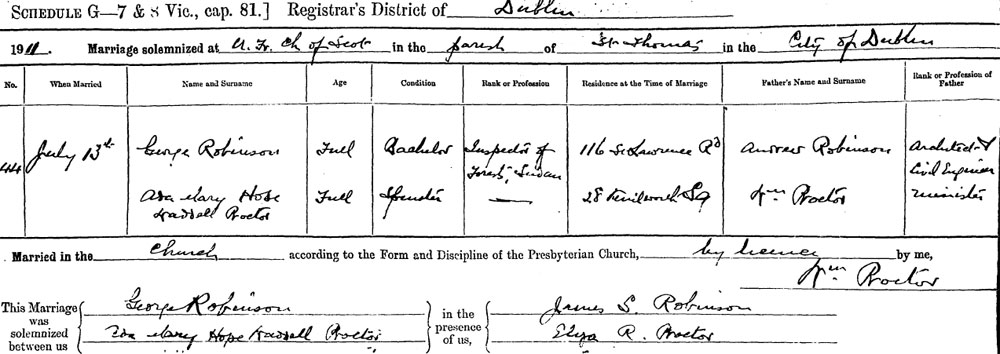 SCHEDULE G—7 & 8 Vic., cap. 81.] Registrar's District of Dublin
1911. Marriage solemnized at U. Fr. Ch of Scot in the parish of St. Thomas in the City of Dublin
No. When Married Name and Surname Age Condition Rank or Profession Residence at the Time of Marriage Father's Name and Surname Rank or Profession of Father
44 July 13th George Robinson Full Bachelor Inspector of Forests, Sudan 116 St. Lawrence Rd Andrew Robinson Architect & Civil Engineer
Ada Mary Hope Proctor Full Spinster — 28 Kenilworth Sq Wm Proctor Minister
Married in the Church according to the Form and Discipline of the Presbyterian Church, by licence by me,
Wm Proctor
This Marriage was solemnized between us George Robinson in the presence of us, James S. Robinson
Ada Mary Hope Proctor Eliza R. Proctor